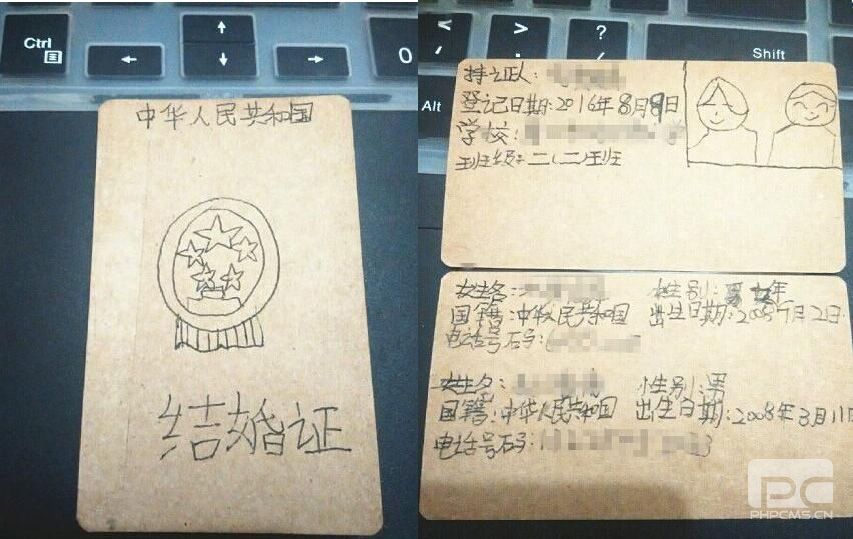 Ctrl
0
<
>
?
/
Shift
Alt
中华人民共和国
结婚证
持证人:
登记日期:2016年8月9日
学校:
班级:二(二)班
姓名: 性别:
国籍:中华人民共和国 出生日期:2008年7月2日
电话号码:
姓名: 性别:男
国籍:中华人民共和国 出生日期:2008年3月11日
电话号码: 3
PC
PHPCMS.CN